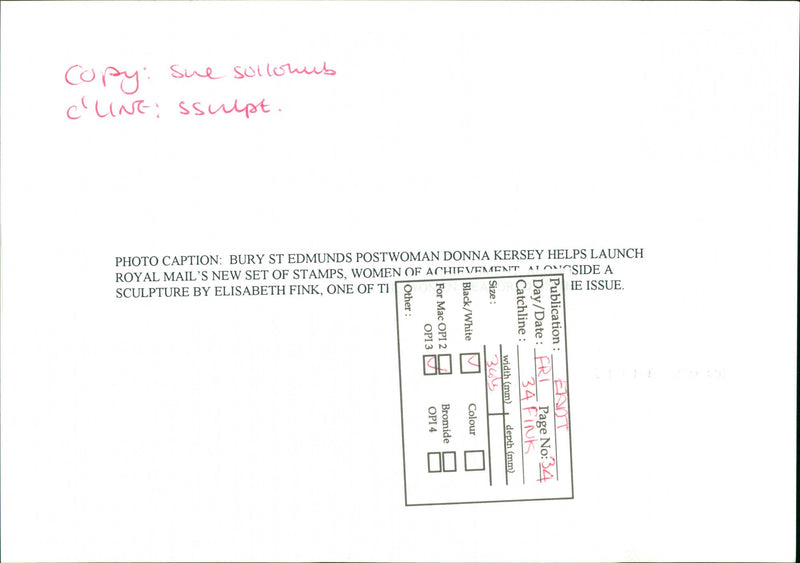 Copy: Sue Sollohub
C'LINE: SSculpt.
PHOTO CAPTION: BURY ST EDMUNDS POSTWOMAN DONNA KERSEY HELPS LAUNCH
ROYAL MAIL'S NEW SET OF STAMPS, WOMEN OF ACHIEVEMENT, ALONGSIDE A
SCULPTURE BY ELISABETH FINK, ONE OF IE ISSUE.
Publication: EADT
Day/Date: FRI Page No: 34
Catchline: 34 FINK
width (mm) depth (mm)
Size:
Black/White Colour
For Mac OPI 2 Bromide
OPI 3 OPI 4
Other: